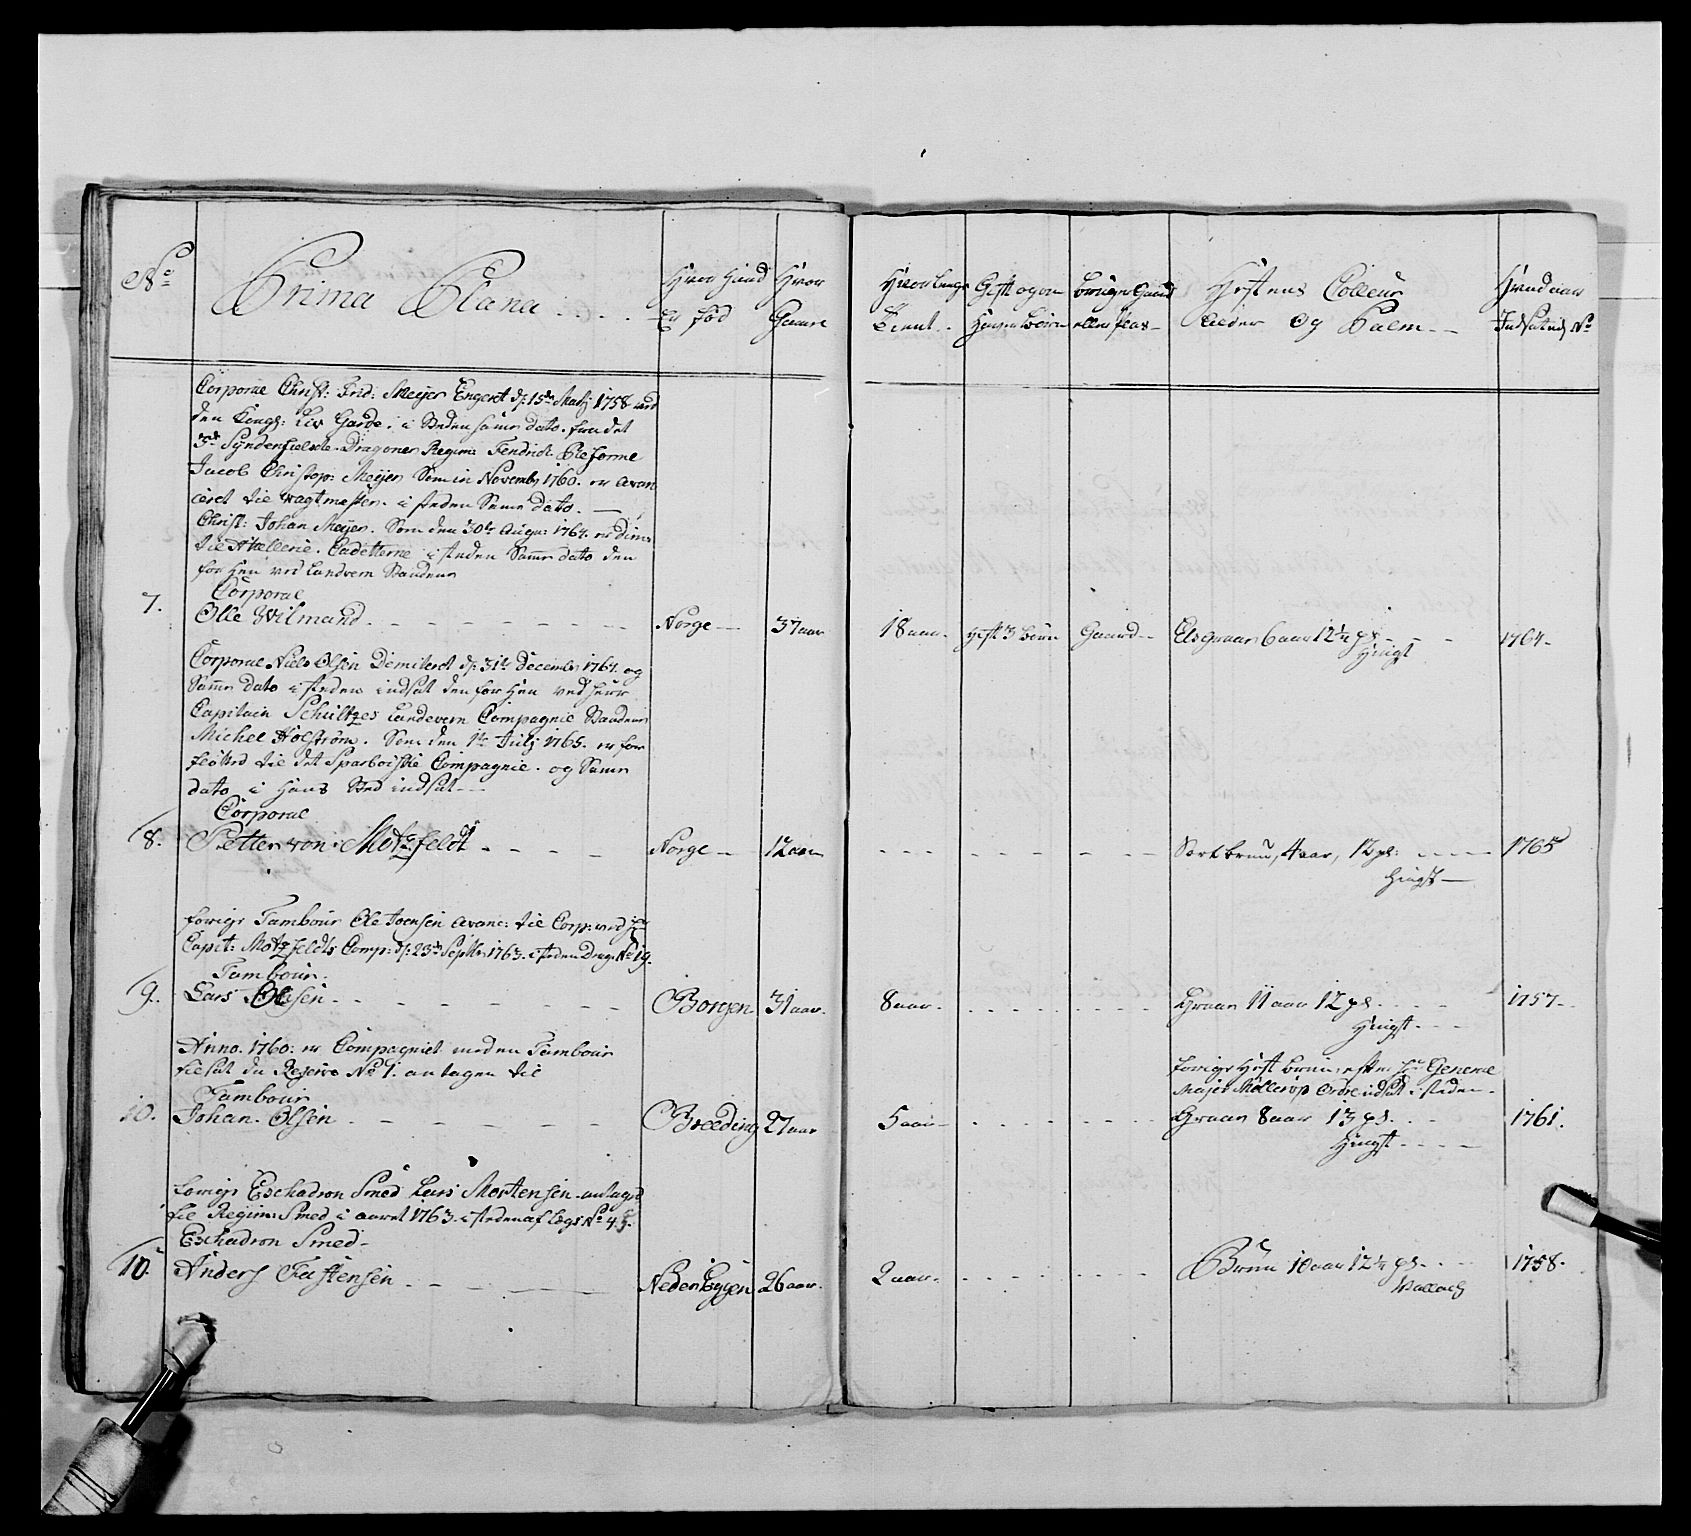 No
Prima Plana
Hvor Hand
Er Fød
Hvor
Gammel
Hvor lenge
Tient
Gift og om
Hingen Børn
bruger Gaard
eller plas
Hestens Colleur
Alder Og Palm
Hvad aar
Indsat ved No
Corporal Christ: Frid: Meijer Engeret d: 15de Martj 1758 ved
den Kongl: Liv Garde, i Steden samme dato fra det
3de Syndenfieldske Dragoner Regimt Fendrick Reforme
Jacob Christop: Meijer Som in Novembr 1760 er avan
ceret til vagtmester i steden Samme dato
Christ: Johan Meijer. Som den 30te Augu: 1764 er dim:
til Artellerie Cadetterne i steden Samme dato den
for Hen ved Landvern Standen
Corporal
7. Olle Wilmand
Norge
37 aar
18 aar
gift 3 børn
Gaard
Elsgraae 6 aar 12 1/4 pl
Hingst
1764
Corporal Niels Olsen Demiteret d: 31te Decembr 1764 og
Samme dato i steden indsat den for Hen ved Herr
Capitain Schultzes Landvern Compagnie Standen
Michel Holstrøm. Som den 1te Julj 1765 er for
fløtted til det Sparboiske Compagnie og Samme
dato i Hans Sted indsat
Corporal
8. Petter von Motzfeldt
Norge
12 aar
Sort brun, 4 aar, 12 pl:
Hingst
1765
forige Tambour Ole Joensen avanc: til Corp: ved Hr
Capit: Motzfeldts Comp: d: 23de Septbr 1763 i steden Drag: No 19.
Tambour
9. Lars Olsen
Borgen
31 aar
8 aar
Graae 11 aar 12 pl
Hingst
1757
Anno 1760 er Compagniet med en Tambour
tilsat da Reserve No 1 antagen til
Tambour
forige Hest brun, efter Hr General
Major Møllerop Ordre indsat i steden
10. Johan Olsen
Breding
27 aar
5 aar
Graae 8 aar 13 pl
Hingst
1761.
forige Eschadron Smed Lars Mortensen antaged
til Regim: Smed i aaret 1763 i steden af Legs No 45
Eschadron Smed
10. Anders Fastensen
Neden Eggen
26 aar
2 aar
Brun 10 aar 12 1/4 pl
Wallach
1758